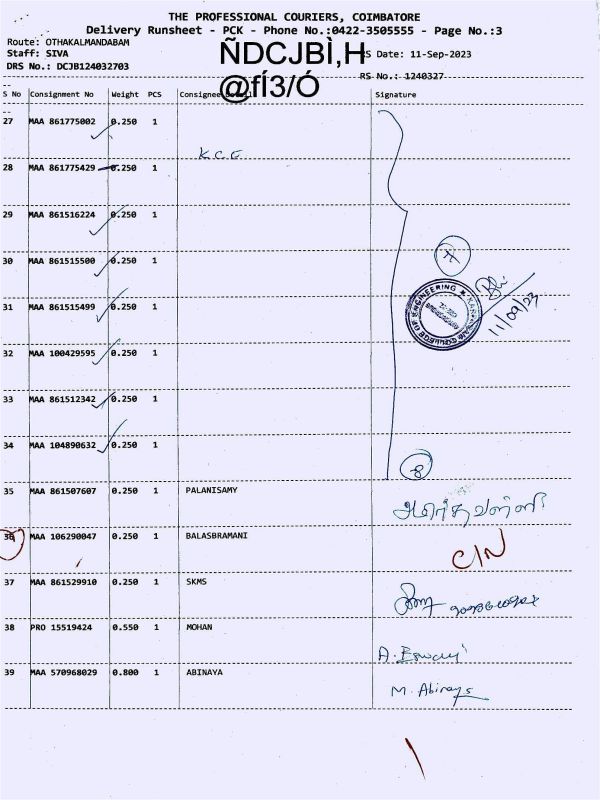 THE PROFESSIONAL COURIERS, COIMBATORE
Delivery Runsheet - PCK - Phone No.:0422-3505555 - Page No.:3
Route: OTHAKALMANDABAM
Staff: SIVA
ÑDCJBÌ,H
S Date: 11-Sep-2023
DRS No.: DCJB124032703
@fÍ3/Ó
RS No.: 1240327
S No Consignment No Weight PCS Signature
27 MAA 861775002 0.250 1
K C E
28 MAA 861775429 0.250 1
29 MAA 861516224 0.250 1
30 MAA 861515500 0.250 1
7
31 MAA 861515499 0.250 1
COLLEGE OF ENGINEERING
11/09/23
32 MAA 100429595 0.250 1
33 MAA 861512342 0.250 1
34 MAA 104890632 0.250 1
8
35 MAA 861507607 0.250 1 PALANISAMY
36 MAA 106290047 0.250 1 BALASBRAMANI
C/N
37 MAA 861529910 0.250 1 SKMS
38 PRO 15519424 0.550 1 MOHAN
39 MAA 570968029 0.800 1 ABINAYA
M. Abinaya